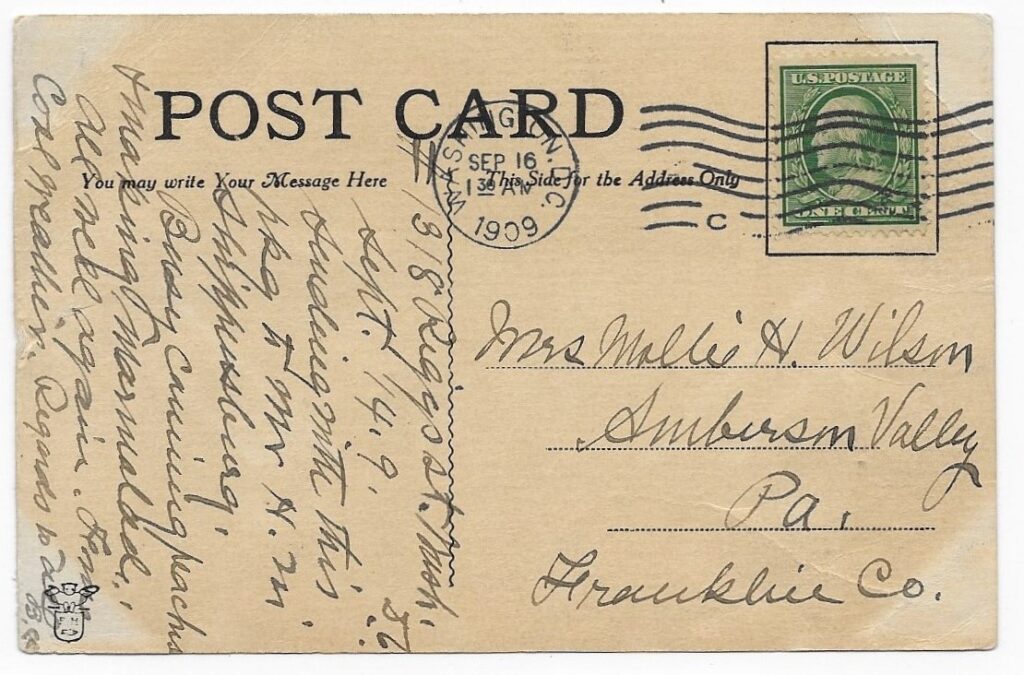 POST CARD
You may write Your Message Here
This Side for the Address Only
WASHINGTON, D.C.
SEP 16
1 30 AM
1909
C
U.S. POSTAGE
ONE CENT
1318 Riggs St. Wash.
Sept. 14, 9.
Sending with this
pkg to Mr H. M
Shippensburg.
Busy canning peaches
& making Marmalade.
All well again. Fine
Cool weather. Regards to all
Mrs Mollie H. Wilson
Amberson Valley
Pa.
Franklin Co.